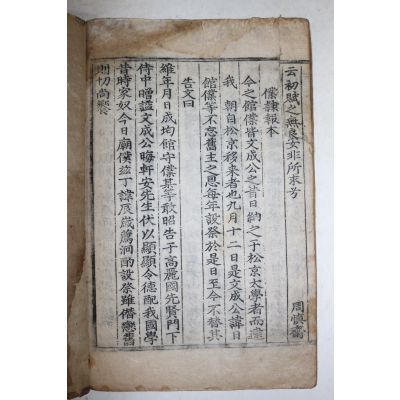 云初賦之無良女非所求兮
周愼齋
僕隸報本
今之館僕皆文成公之昔日納之于松京太學者而逮
我 朝自松京移來者也九月十二日是文成公諱日
館僕等不忘舊主之恩每年設祭於是日至今不替其
告文曰
維年月日成均館守僕某等敢昭告于高麗國先賢門下
侍中贈諡文成公晦軒安先生伏以顯顯令德配我國學
昔時家奴今日廟僕玆丁諱辰歲薦洞酌設祭雖僭戀舊
則切尙饗